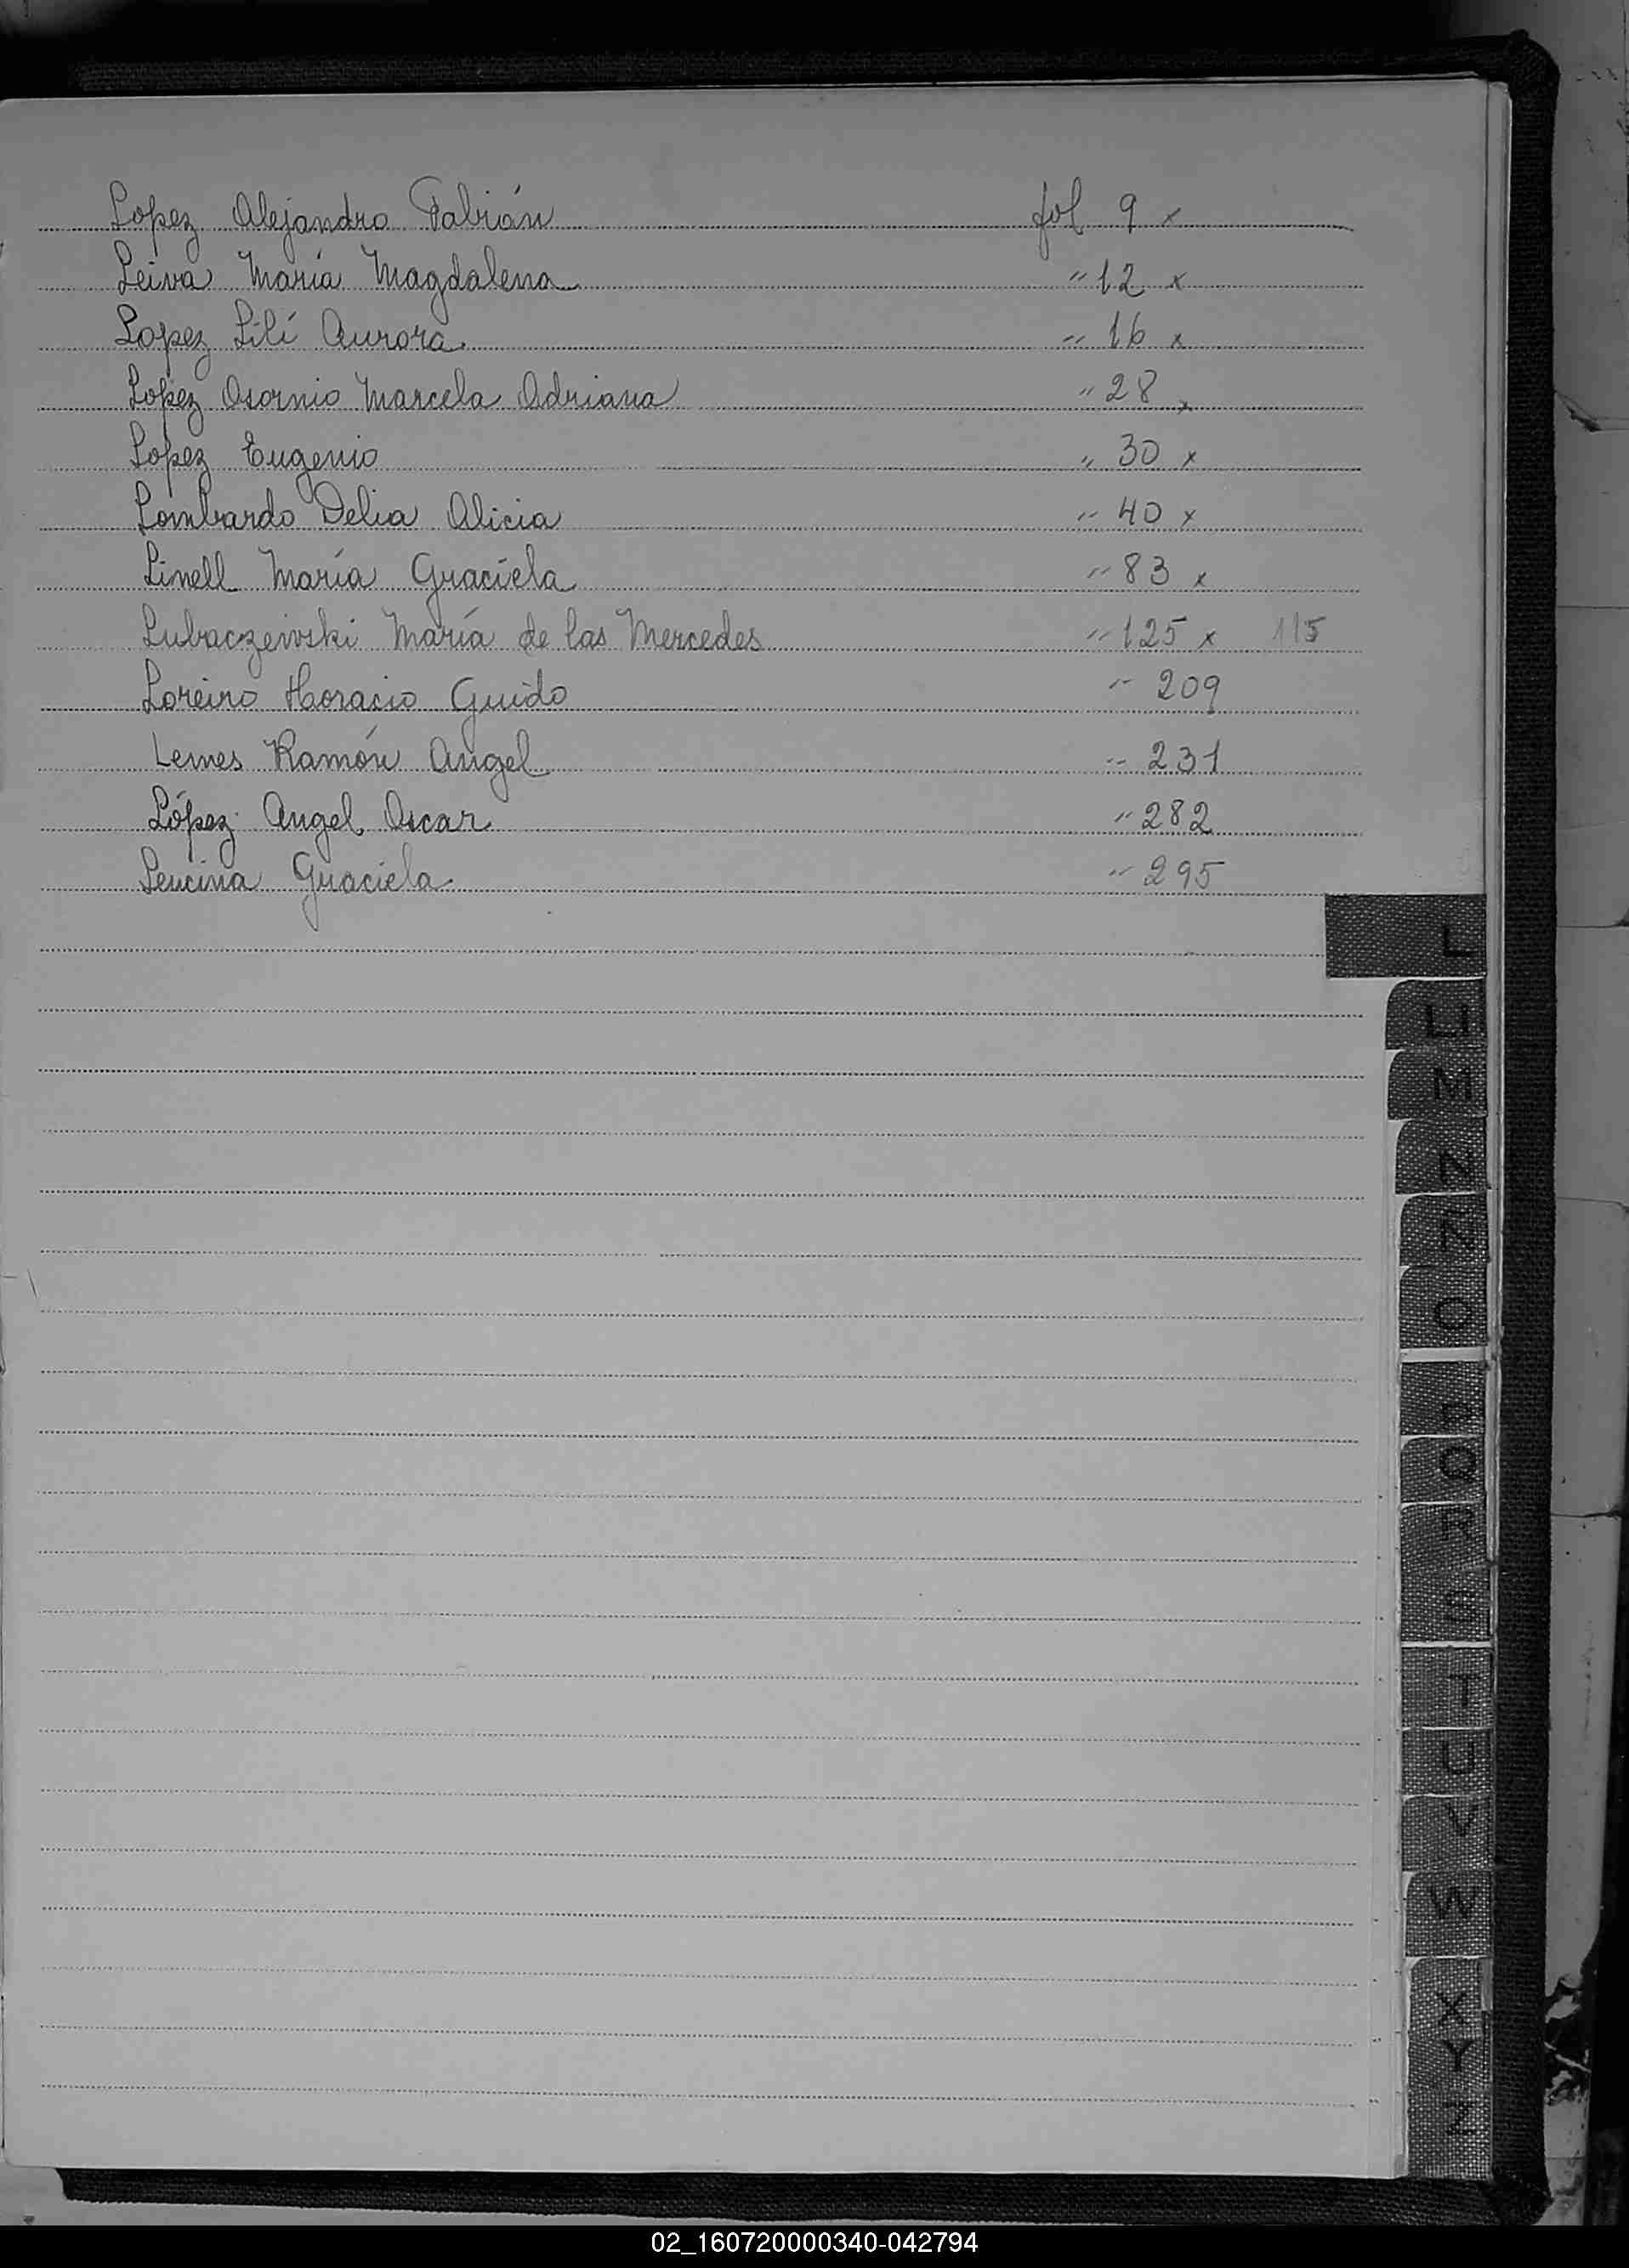 Lopez Alejandro Fabián fol 9 x
Leiva María Magdalena " 12 x
Lopez Lilí Aurora " 16 x
Lopez Osornio Marcela Adriana " 28 x
Lopez Eugenio " 30 x
Lombardo Delia Alicia " 40 x
Linell María Graciela " 83 x
Lubaczewski María de las Mercedes " 125 x 115
Loreiro Horacio Guido " 209
Lemes Ramón Angel " 231
López Angel Oscar " 282
Lencina Graciela " 295
L
LL
M
N
Ñ
O
P
Q
R
S
T
U
V
W
X
Y
Z
02_160720000340-042794